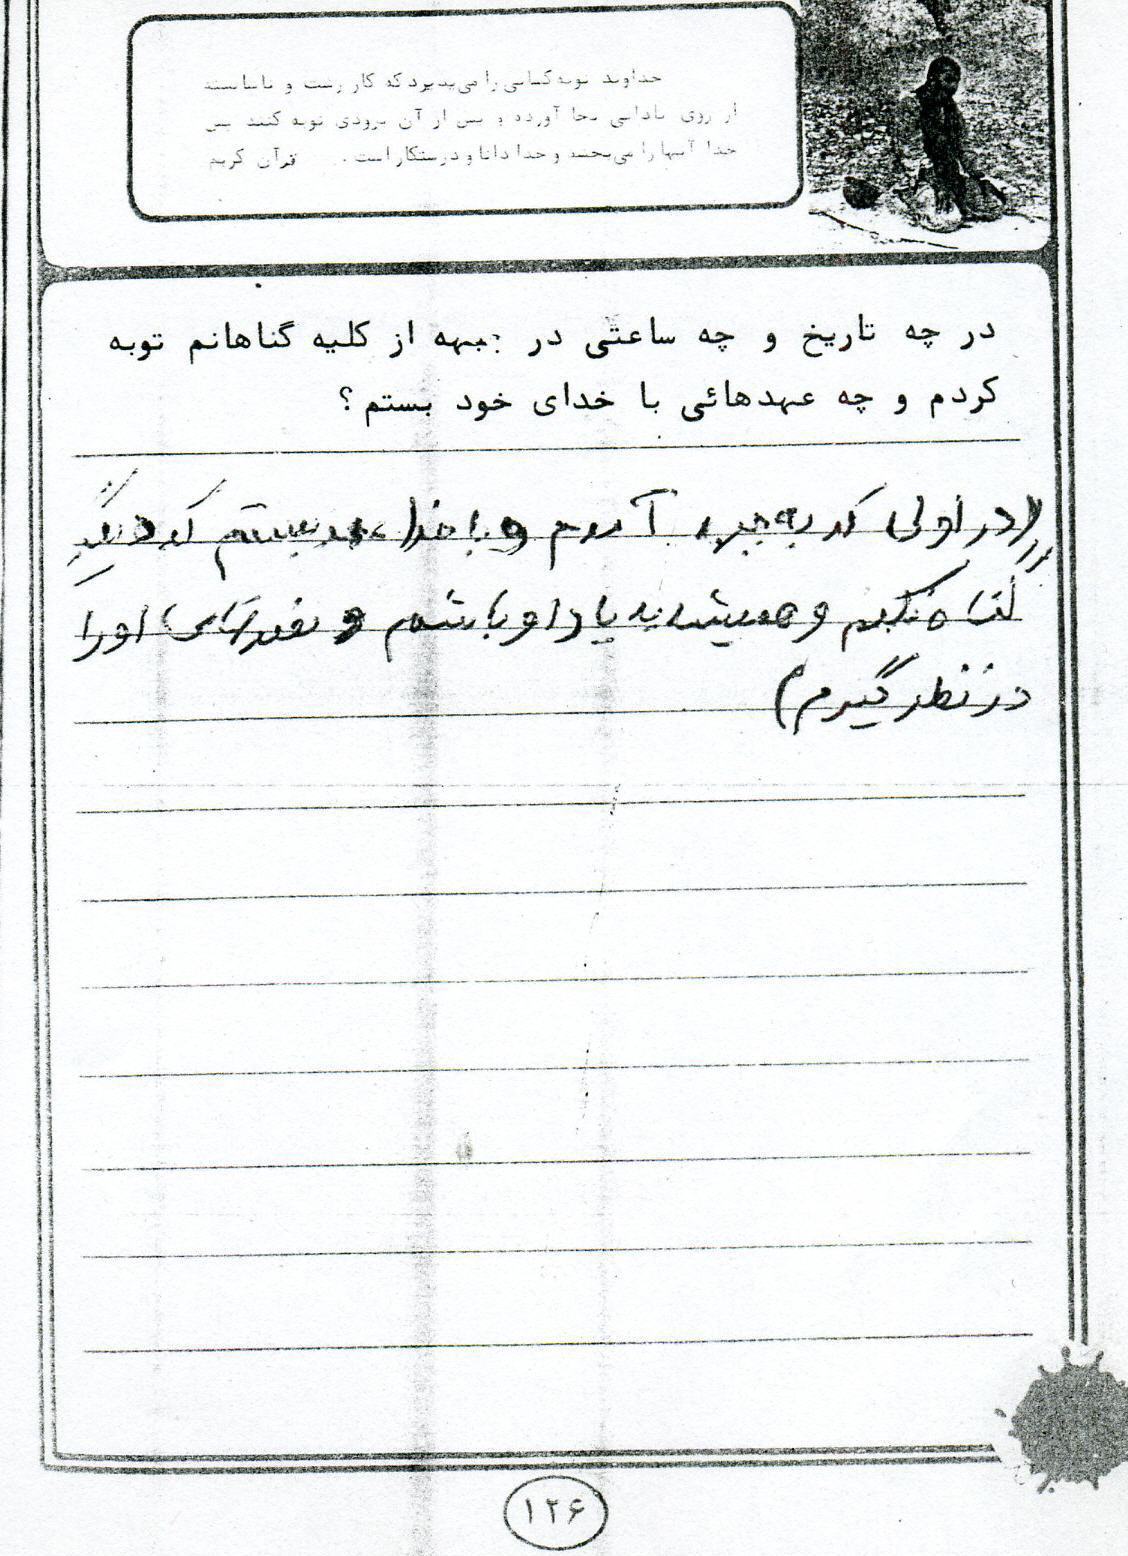 خداوند توبه کسانی را می‌پذیرد که کار زشت و ناشایسته
از روی نادانی بجا آورده و پس از آن بزودی توبه کنند پس
خدا آنها را می‌بخشد و خدا دانا و درستکار است . قرآن کریم
در چه تاریخ و چه ساعتی در جبهه از کلیه گناهانم توبه
کردم و چه عهدهائی با خدای خود بستم ؟
(در اولی که به جبهه آمدم و با خدا عهد بستم که دیگر
گناه نکنم و همیشه به یاد او باشم و او را
در نظر گیرم)
۱۲۶